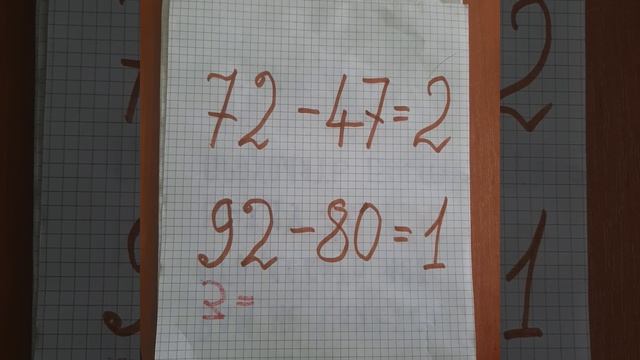 72-47=2
92-80=1
=